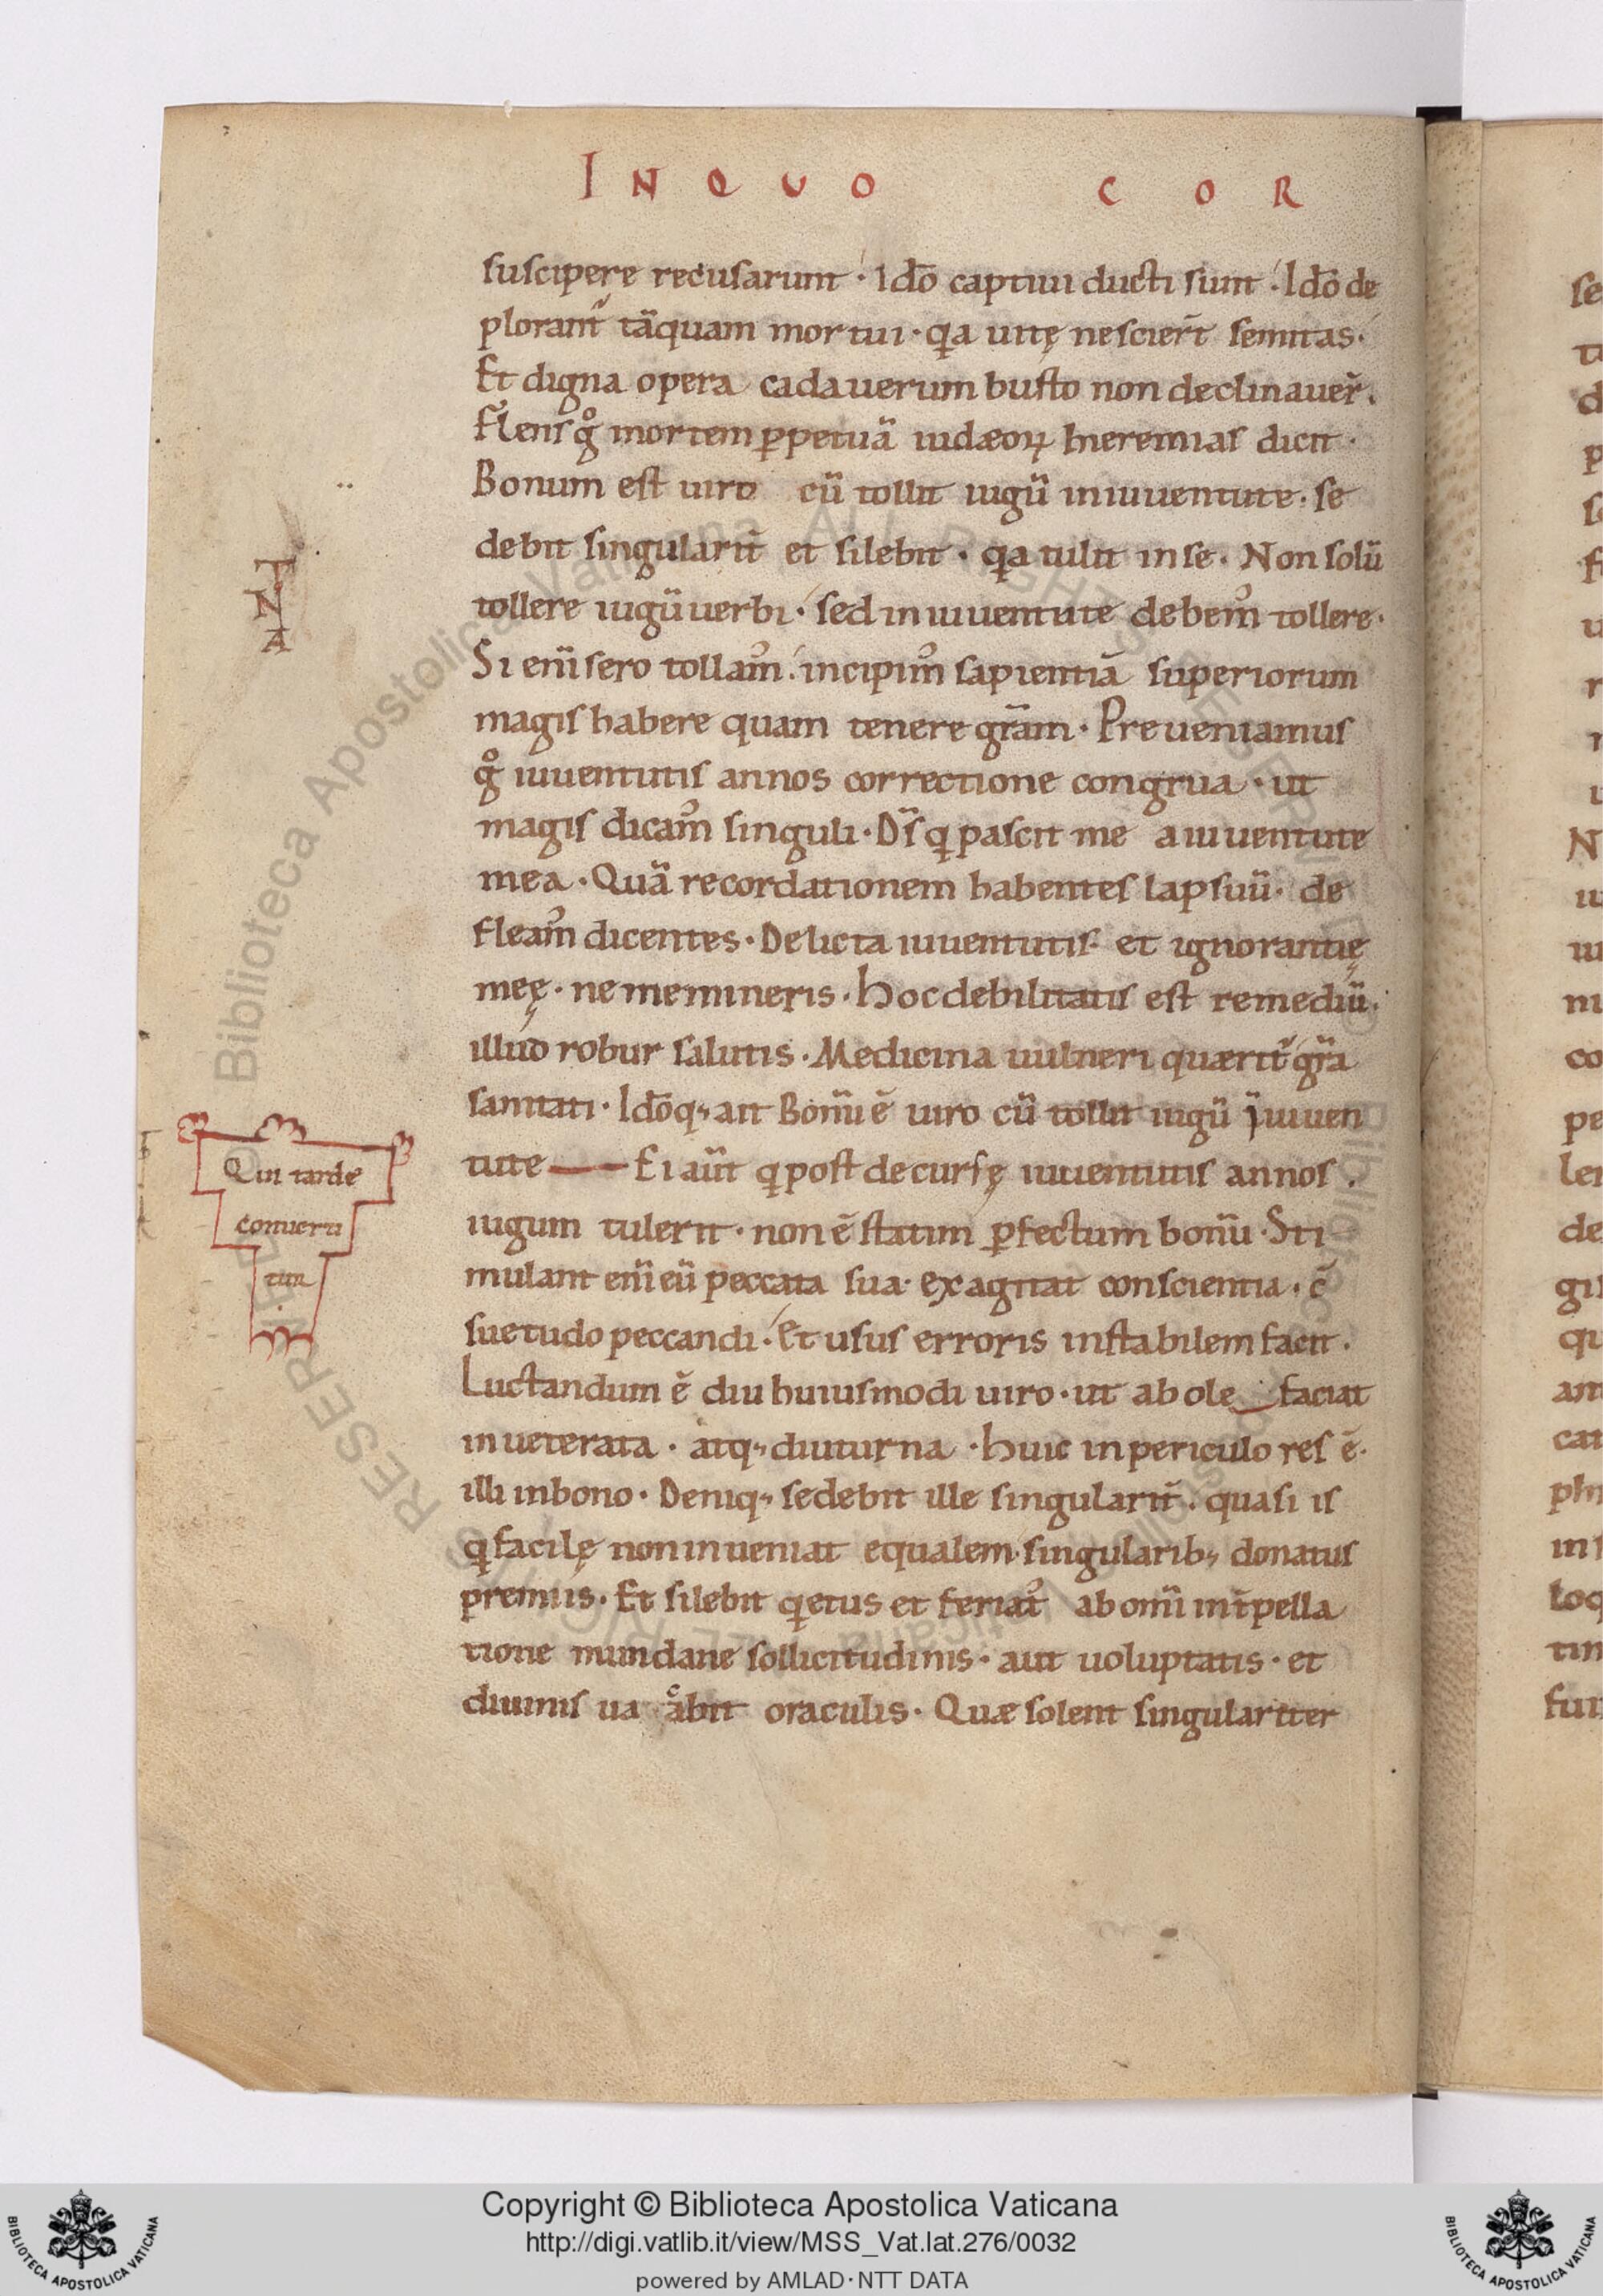 IN QUO COR
suscipere recusarunt · Idō captiui ducti sunt · Idō de
plorant᷑ tāquam mortui · qa uitę nescier̄t semitas ·
Et digna opera cadauerum busto non declinauer̄ .
flens gͦ mortem ꝑpetuā iudæoꝝ hieremias dicit ·
Bonum est uiro cū tollit iugū in iuuentute · se
debit singularit̄ et silebit · qa tulit in se · Non solū
tollere iugū uerbi · sed in iuuentute debem᷒ tollere ·
Si enī sero tollam᷒ · incipim᷒ sapientiā superiorum
magis habere quam tenere gr̄am · Preueniamus
gͦ iuuentutis annos correctione congrua · ut
magis dicam᷒ singuli · Dī̄s q pascit me a iuuentute
mea · Quā recordationem habentes lapsuū · de
fleam᷒ dicentes · Delicta iuuentutis · et ignorantię
meę · ne memineris · Hoc debilitatis est remediū ·
illud robur salutis · Medicina uulneri quærit᷑ gr̄a
sanitati · Idōq; ait Bonū ē uiro cū tollit iugū ī iuuen
tute — Ei aūt q post decursę iuuentutis annos .
iugum tulerit · non ē statim ꝑfectum bonū · Sti
mulant enī eū peccata sua · exagitat conscientia · c̄
suetudo peccandi · Et usus erroris instabilem facit .
Luctandum ē diu huiusmodi uiro · ut ab ole faciat
inueterata · atq; diuturna · huic in periculo res ē ·
illi in bono · Deniq; sedebit ille singularit̄ . quasi is
q facilę non inueniat equalem singularib; donatus
premiis · Et silebit qetus et feriat᷒ ab omī int̄pella
tione mundane sollicitudinis · aut uoluptatis · et
diuinis ua cͦabit oraculis · Quæ solent singulariter
Qui tarde
conuerti
tur
Copyright © Biblioteca Apostolica Vaticana
http://digi.vatlib.it/view/MSS_Vat.lat.276/0032
powered by AMLAD·NTT DATA
BIBLIOTECA APOSTOLICA VATICANA
BIBLIOTECA APOSTOLICA VATICANA